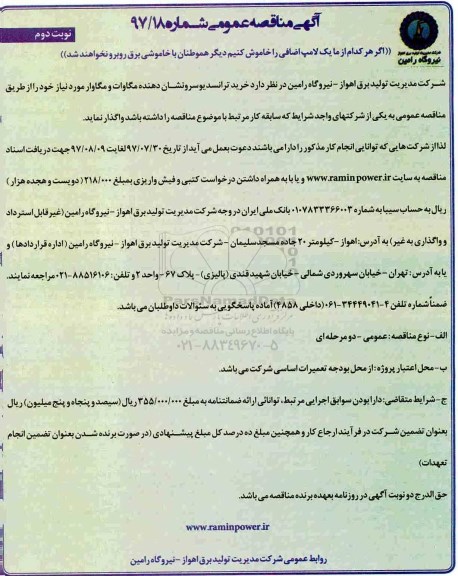 آگهی مناقصه عمومی شماره ۹۷/۱۸
نوبت دوم
شرکت مدیریت تولید برق اهواز
نیروگاه رامین
((اگر هر کدام از ما یک لامپ اضافی را خاموش کنیم دیگر هموطنان با خاموشی برق روبرو نخواهند شد))
شرکت مدیریت تولید برق اهواز -نیروگاه رامین در نظر دارد خرید ترانسدیوسر و نشان دهنده مگاوات و مگاوار مورد نیاز خود را از طریق
مناقصه عمومی به یکی از شرکتهای واجد شرایط که سابقه کار مرتبط با موضوع مناقصه را داشته باشد واگذار نماید.
لذا از شرکت هایی که توانایی انجام کار مذکور را دارا می باشند دعوت بعمل می آید از تاریخ ۹۷/۰۷/۳۰ لغایت ۹۷/۰۸/۰۹ جهت دریافت اسناد
مناقصه به سایت www.raminpower.ir و یا با به همراه داشتن درخواست کتبی و فیش واریزی بمبلغ ۲۱۸/۰۰۰ ( دویست و هجده هزار )
ریال به حساب سیبا به شماره ۰۱۰۷۸۳۳۳۶۶۰۰۳ بانک ملی ایران در وجه شرکت مدیریت تولید برق اهواز -نیروگاه رامین (غیر قابل استرداد
و واگذاری به غیر) به آدرس: اهواز -کیلومتر ۲۰ جاده مسجدسلیمان - شرکت مدیریت تولید برق اهواز -نیروگاه رامین (اداره قراردادها) و
یا به آدرس : تهران -خیابان سهروردی شمالی -خیابان شهید قندی (پالیزی) - پلاک ۶۷ -واحد ۲ و تلفن: ۸۸۵۱۶۱۰۶-۰۲۱ مراجعه نمایند.
ضمناً شماره تلفن ۴-۳۴۴۴۹۰۴۱-۰۶۱ (داخلی ۴۸۵۸) آماده پاسخگویی به سئوالات داوطلبان می باشد.
پایگاه اطلاع رسانی مناقصه و مزایده
۰۲۱-۸۸۳۴۹۶۷۰-۵
الف -نوع مناقصه: عمومی -دو مرحله ای
ب -محل اعتبار پروژه: از محل بودجه تعمیرات اساسی شرکت می باشد.
ج -شرایط متقاضی: دارا بودن سوابق اجرایی مرتبط، توانائی ارائه ضمانتنامه به مبلغ ۳۵۵/۰۰۰/۰۰۰ ریال (سیصد و پنجاه و پنج میلیون) ریال
بعنوان تضمین شرکت در فرآیند ارجاع کار و همچنین مبلغ ده درصد کل مبلغ پیشنهادی (در صورت برنده شدن بعنوان تضمین انجام
تعهدات)
حق الدرج دو نوبت آگهی در روزنامه بعهده برنده مناقصه می باشد.
www.raminpower.ir
روابط عمومی شرکت مدیریت تولید برق اهواز -نیروگاه رامین